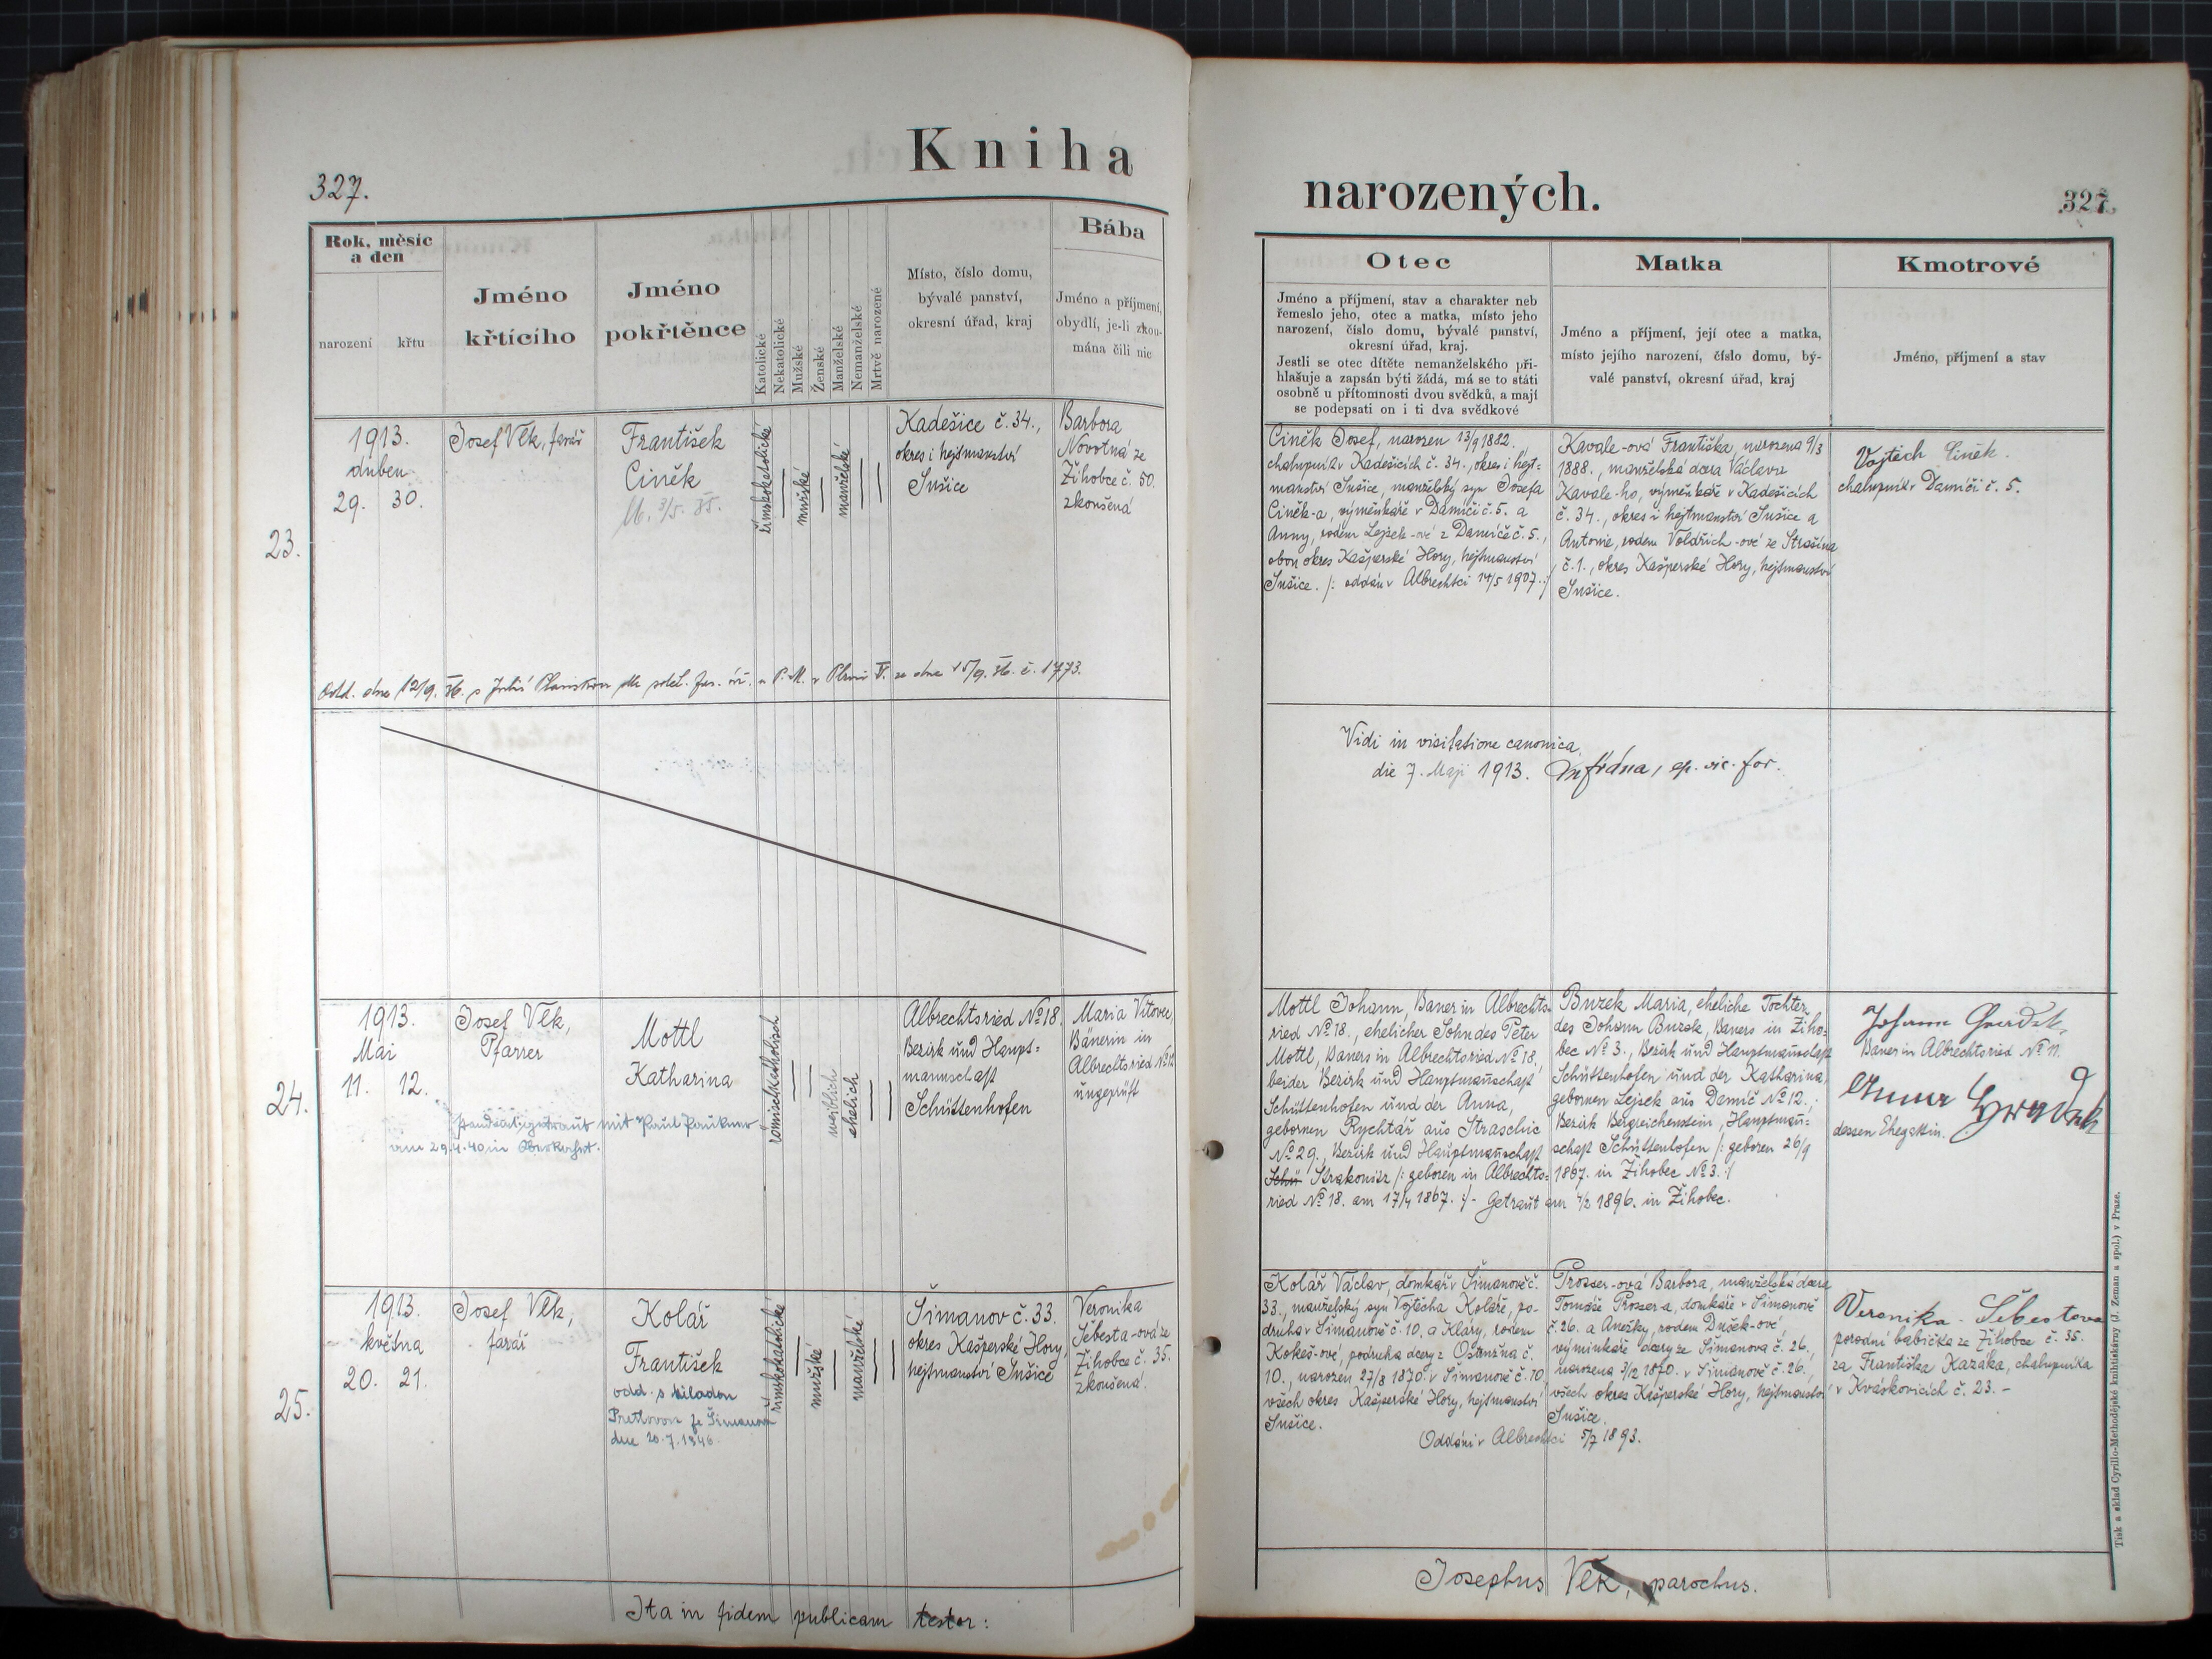 Kniha
327.
Rok, měsíc a den
narození
křtu
Jméno křtícího
Jméno pokřtěnce
Katolické
Nekatolické
Mužské
Ženské
Manželské
Nemanželské
Mrtvě narozené
Místo, číslo domu,
bývalé panství,
okresní úřad, kraj
Bába
Jméno a příjmení,
obydlí, je-li zkou-
mána čili nic
23.
1913.
duben
29. 30.
Josef Vlk, farář
František
Ciněk
římskokatolické
mužské
manželské
Kadešice č. 34.,
okres i hejtmanství
Sušice
Barbora
Novotná ze
Žihobce č. 50.
zkoušená
24.
1913.
Mai
11. 12.
Josef Vlk,
Pfarrer
Mottl
Katharina
getraut mit Paul
am 29.4.40 in
römischkatholisch
weiblich
ehelich
Albrechtsried No 18.
Bezirk und Haupt=
mannschaft
Schüttenhofen
Maria Vítovec,
Bäuerin in
Albrechtsried No 12
ungeprüft
25.
1913.
května
20. 21.
Josef Vlk,
farář
Kolář
František
odd. s
ze Šimanova
dne 20.7.1946.
římskokatolické
mužské
manželské
Šimanov č. 33.
okres Kašperské Hory,
hejtmanství Sušice
Veronika
Šebesta-ová ze
Žihobce č. 35.
zkoušená.
Ita in fidem publicam testor:
narozených.
327.
Otec
Jméno a příjmení, stav a charakter neb
řemeslo jeho, otec a matka, místo jeho
narození, číslo domu, bývalé panství,
okresní úřad, kraj.
Jestli se otec dítěte nemanželského při-
hlašuje a zapsán býti žádá, má se to státi
osobně u přítomnosti dvou svědků, a mají
se podepsati on i ti dva svědkové
Matka
Jméno a příjmení, její otec a matka,
místo jejího narození, číslo domu, bý-
valé panství, okresní úřad, kraj
Kmotrové
Jméno, příjmení a stav
Ciněk Josef, narozen 13/9 1882.
chalupník v Kadešicích č. 34., okres i hejt=
manství Sušice, manželský syn Josefa
Ciněk-a, výměnkáře v Damíči č. 5. a
Anny, rodem Lejsek-ové z Damíče č. 5.,
obou okres Kašperské Hory, hejtmanství
Sušice. /: oddán v Albrechtci 14/5 1907. :/
Kavale-ová Františka, narozena 9/3
1888., manželská dcera Václava
Kavale-ho, výměnkáře v Kadešicích
č. 34., okres i hejtmanství Sušice a
Antonie, rodem Voldřich-ové ze Strašína
č. 1., okres Kašperské Hory, hejtmanství
Sušice.
Vojtěch Ciněk.
chalupník v Damíči č. 5.
Vidi in visitatione canonica,
die 7. Maji 1913.
Mottl Johann, Bauer in Albrechts=
ried No 18., ehelicher Sohn des Peter
Mottl, Bauers in Albrechtsried No 18,
beider Bezirk und Hauptmannschaft
Schüttenhofen und der Anna,
gebornen Rychtář aus Straschic
No 29., Bezirk und Hauptmannschaft
Schü Strakonitz /: geboren in Albrechts=
ried No 18. am 17/4 1867. :/ - Getraut am 4/2 1896. in Žihobec.
Buzek Maria, eheliche Tochter
des Johann Buzek, Bauers in Žiho=
bec No 3., Bezirk und Hauptmannschaft
Schüttenhofen und der Katharina,
gebornen Lejsek aus Demič No 12.,
Bezirk Bergreichenstein, Hauptman̄=
schaft Schüttenhofen /: geboren 26/9
1867. in Žihobec No 3. :/
Bauer in Albrechtsried No 11.
Anna
dessen Ehegattin.
Kolář Václav, domkář v Šimanově č.
33., manželský syn Vojtěcha Koláře, po-
druha v Šimanově č. 10. a Kláry, rodem
Kokeš-ové, podruha dcery z Ostružna č.
10., narozen 27/8 1870. v Šimanově č. 10,
všech okres Kašperské Hory, hejtmanství
Sušice.
Prosser-ová Barbora, manželská dcera
Tomáše Prosser-a, domkáře v Šimanově
č. 26. a Anežky, rodem Dušek-ové
výminkáře dcery ze Šimanova č. 26.,
narozena 3/12 1870. v Šimanově č. 26.,
všech okres Kašperské Hory, hejtmanství
Sušice.
Oddáni v Albrechtci 5/7 1893.
Veronika Šebestova
porodní babička ze Žihobce č. 35.
za Františka Kazáka, chalupníka
v Kváskovicích č. 23. -
Josephus Vlk, parochus.
Tisk a sklad Cyrillo-Methodějské knihtiskárny (J. Zeman a spol.) v Praze.